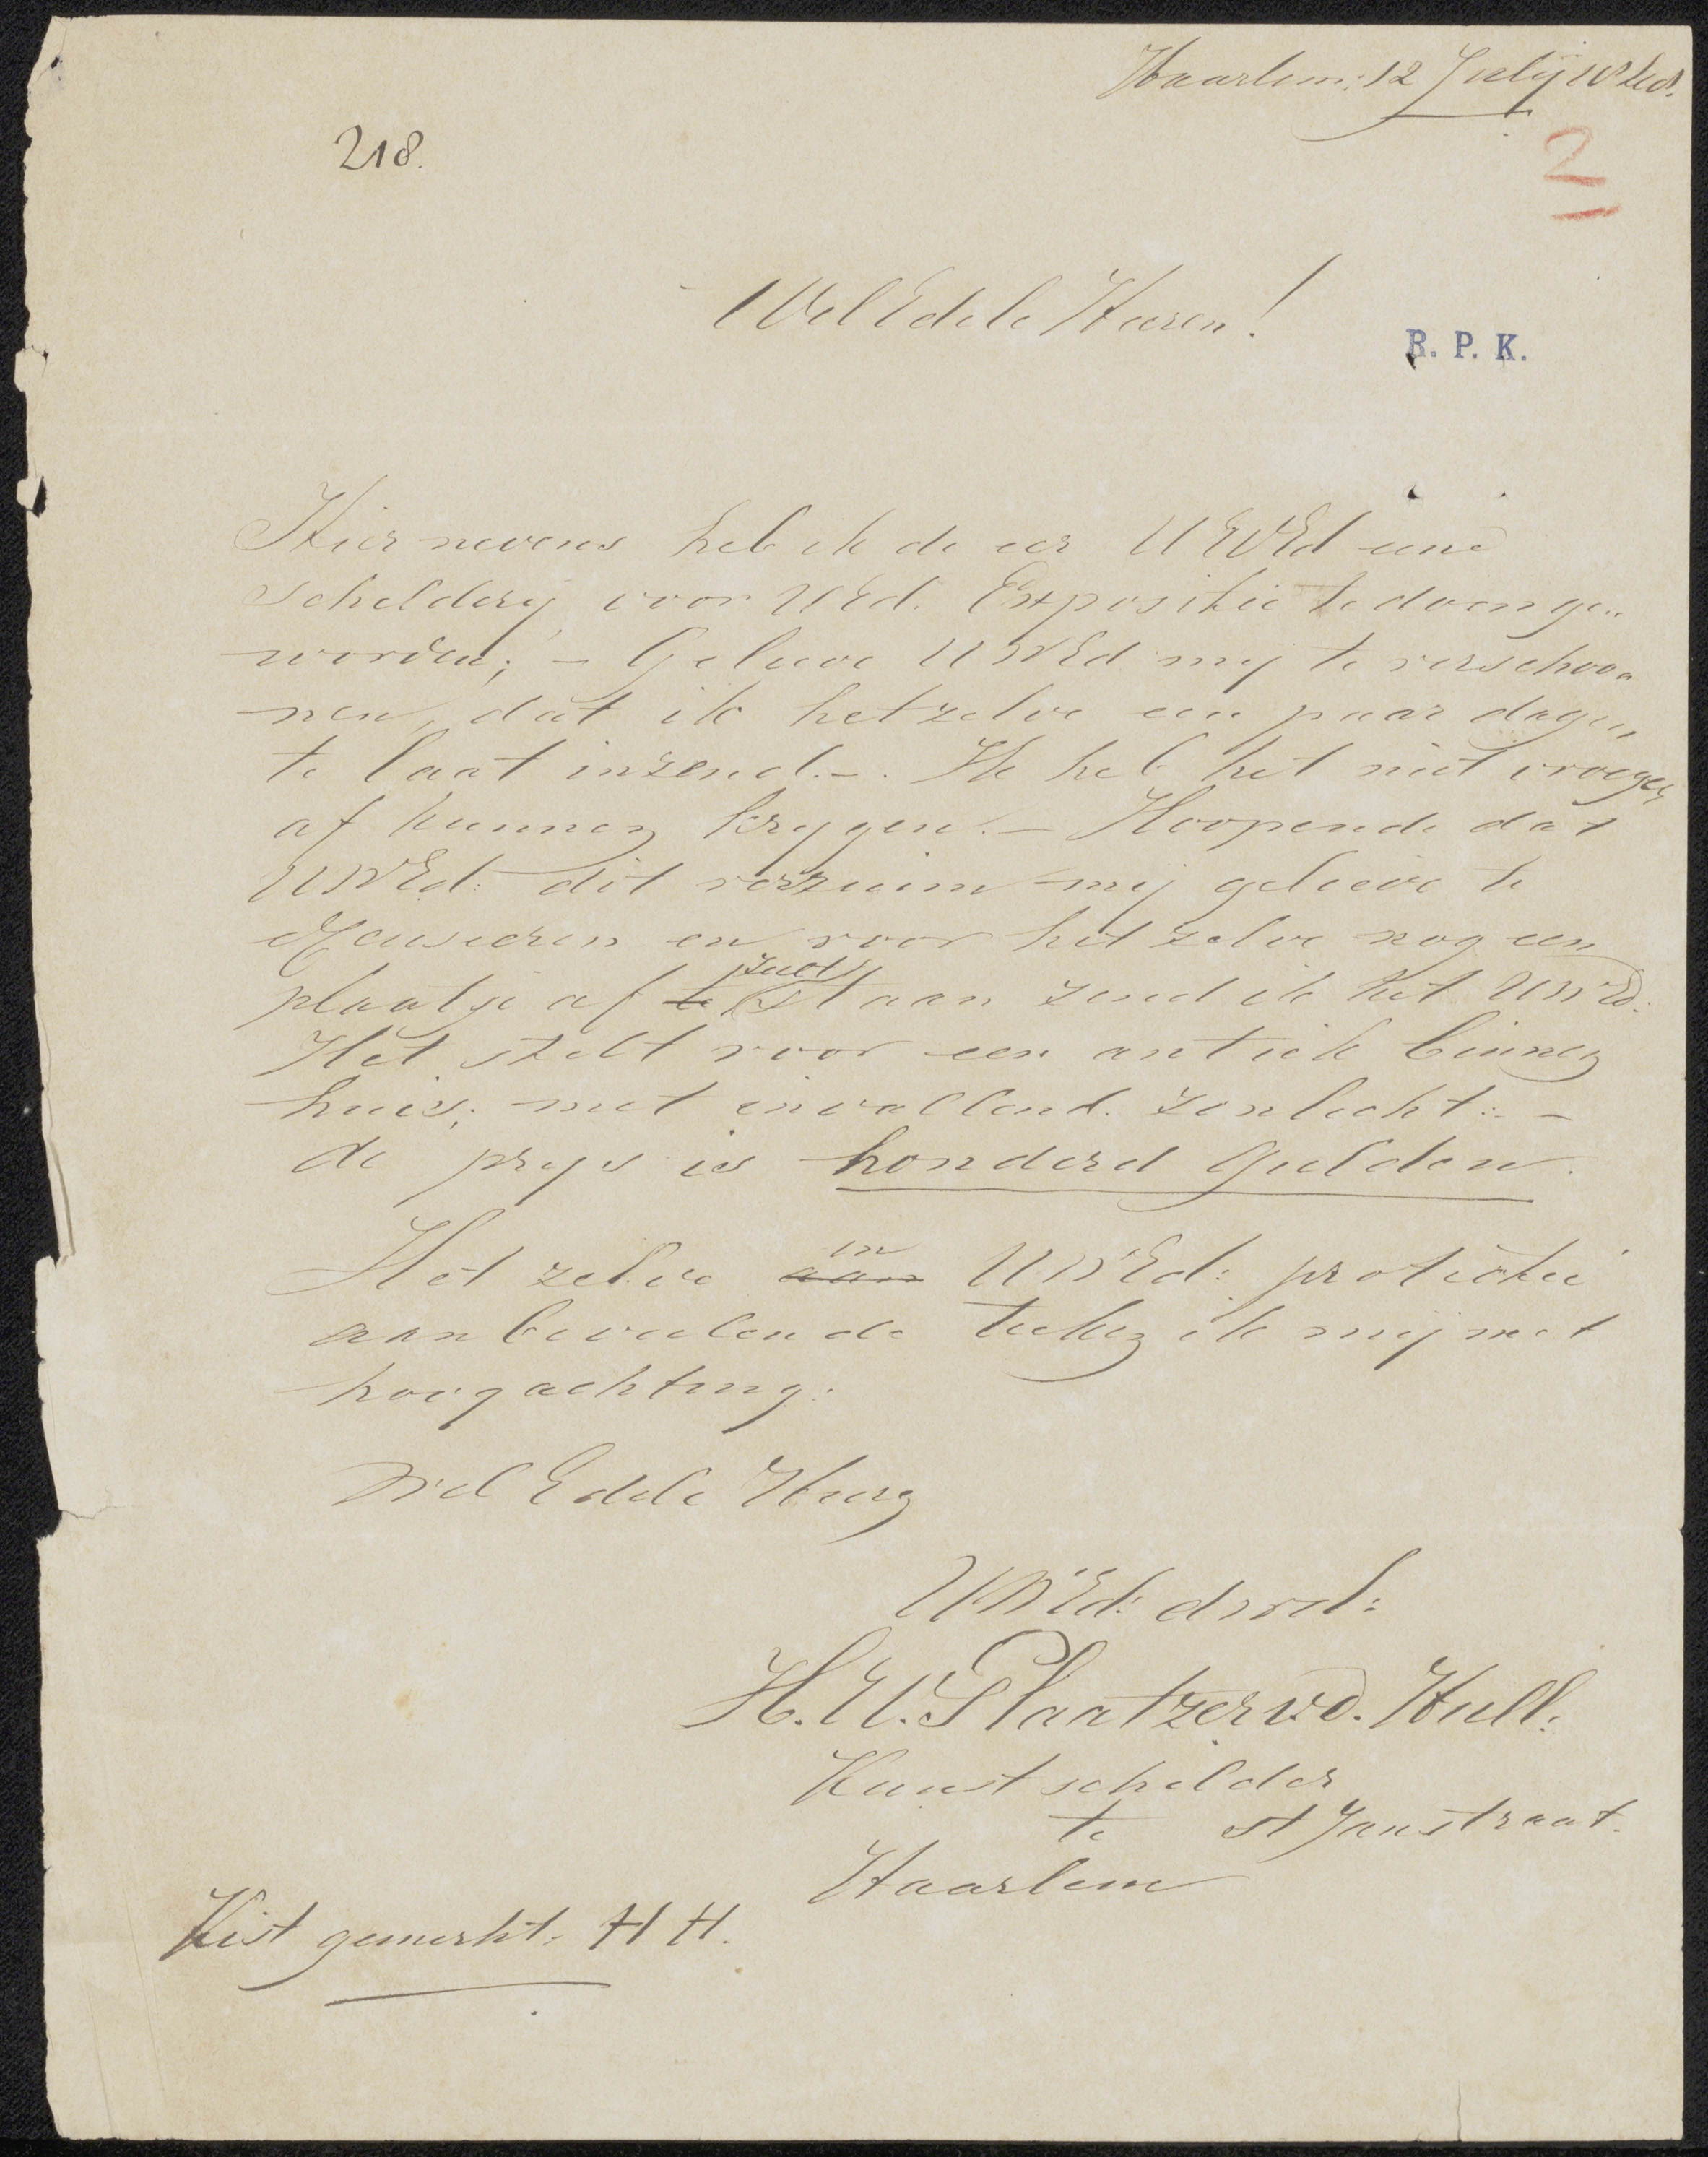 Haarlem: 12 Julij
218.
2
WelEdele Heeren!
R. P. K.
Hier nevens heb ik de eer UWEd eene
schilderij voor UEd. Expositie te doen ge„
worden; – Gelieve UWEd mij te verschoo„
nen, dat ik hetzelve een paar dagen
te laat inzend. –. Ik heb het niet vroeger
af kunnen krygen. – Hoopende dat
UWEd: dit verzuim mij gelieve te
excuseeren en voor het zelve nog een
plaatsje af te staan zend ik het UWEd.
Het stelt voor een antiek binnen
huis, met invallend. zonlicht: –
de prys is honderd Gulden.
in
Het zelve aan UWEd: protectie
aanbeveelende teeken ik mij met
hoogachting.
Wel Edele Heeren
UWEd: dwd:
H. U. Plaatzer vd. Hull:
Kunstschilder
te st Janstraat.
Haarlem
Kist gemerkt: H H.